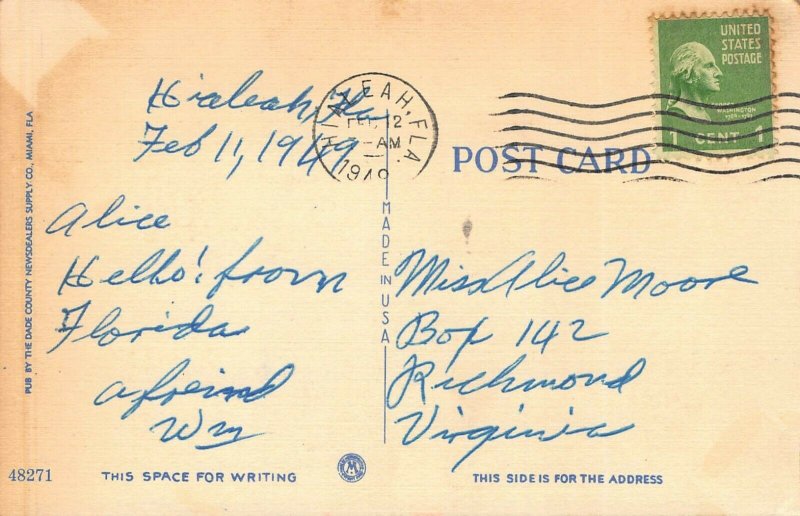 Hialeah, Fla
Feb 11, 1949
Alice
Hello! from
Florida
a freind
Wm
Miss Alice Moore
Box 142
Richmond
Virginia
HIALEAH, FLA.
FEB 12
AM
1949
UNITED
STATES
POSTAGE
WASHINGTON
1 CENT 1
POST CARD
MADE IN USA
PUB BY THE DADE COUNTY NEWSDEALERS SUPPLY CO., MIAMI, FLA
48271
THIS SPACE FOR WRITING
THIS SIDE IS FOR THE ADDRESS